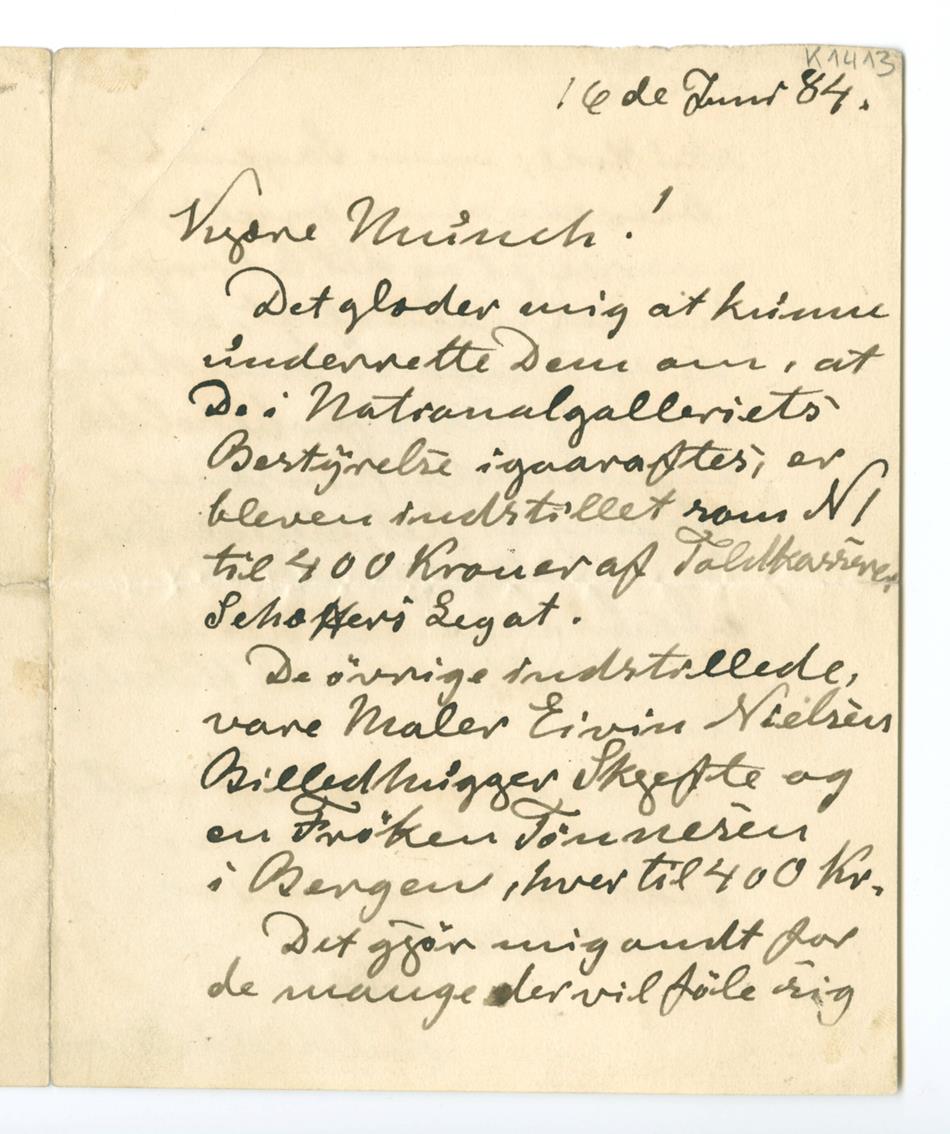 K1413
16 de Juni 84.
Kjære Münch!
Det glæder mig at kunne
underrette Dem om, at
De i Nationalgalleriets
Bestÿrelse igaaraftes, er
bleven indstillet som N 1
til 400 Kroner af Toldkasserer
Schæffers Legat.
De övrige indstillede,
vare Maler Eivin Nielsen
Billedhugger Skjefte og
en Fröken Tönnesen
i Bergen, hver til 400 Kr.
Det gjör mig ondt for
de mange der vil föle sig